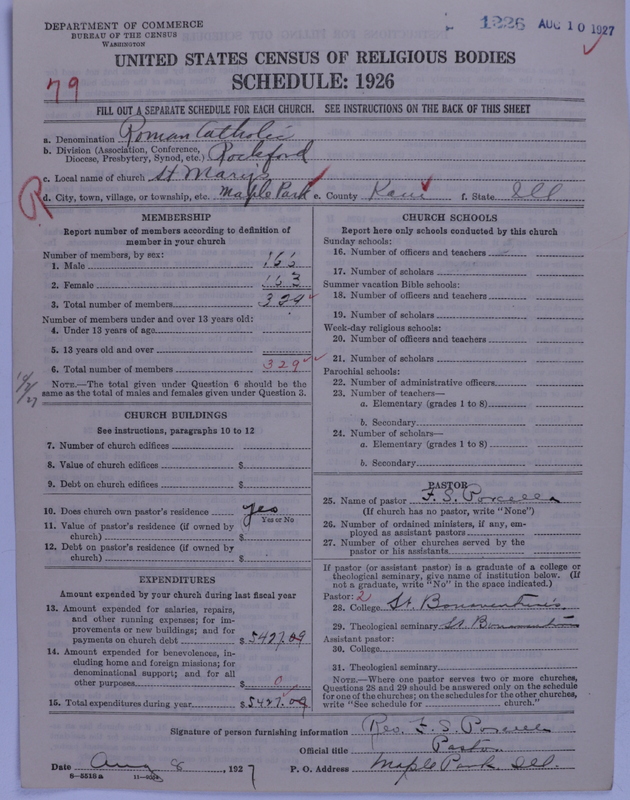 DEPARTMENT OF COMMERCE
BUREAU OF THE CENSUS
WASHINGTON
1226 AUG 10 1927
UNITED STATES CENSUS OF RELIGIOUS BODIES
SCHEDULE: 1926
79
FILL OUT A SEPARATE SCHEDULE FOR EACH CHURCH. SEE INSTRUCTIONS ON THE BACK OF THIS SHEET
a. Denomination Roman Catholic
b. Division (Association, Conference, Diocese, Presbytery, Synod, etc.) Rockford
c. Local name of church St Mary's
R
d. City, town, village, or township, etc. Maple Park e. County Kane f. State Ill
MEMBERSHIP
Report number of members according to definition of
member in your church
Number of members, by sex:
1. Male 166
2. Female 163
3. Total number of members 329
Number of members under and over 13 years old:
4. Under 13 years of age
5. 13 years old and over
6. Total number of members 329
NOTE.—The total given under Question 6 should be the
same as the total of males and females given under Question 3.
CHURCH BUILDINGS
See instructions, paragraphs 10 to 12
7. Number of church edifices
8. Value of church edifices $
9. Debt on church edifices $
10. Does church own pastor's residence yes
Yes or No
11. Value of pastor's residence (if owned by
church) $
12. Debt on pastor's residence (if owned by
church) $
EXPENDITURES
Amount expended by your church during last fiscal year
13. Amount expended for salaries, repairs,
and other running expenses; for im-
provements or new buildings; and for
payments on church debt $ 5427.09
14. Amount expended for benevolences, in-
cluding home and foreign missions; for
denominational support; and for all
other purposes $ 0
15. Total expenditures during year $ 5427.09
CHURCH SCHOOLS
Report here only schools conducted by this church
Sunday schools:
16. Number of officers and teachers
17. Number of scholars
Summer vacation Bible schools:
18. Number of officers and teachers
19. Number of scholars
Week-day religious schools:
20. Number of officers and teachers
21. Number of scholars
Parochial schools:
22. Number of administrative officers
23. Number of teachers—
a. Elementary (grades 1 to 8)
b. Secondary
24. Number of scholars—
a. Elementary (grades 1 to 8)
b. Secondary
PASTOR
25. Name of pastor F. S. Porcella
(If church has no pastor, write "None")
26. Number of ordained ministers, if any, em-
ployed as assistant pastors
27. Number of other churches served by the
pastor or his assistants
If pastor (or assistant pastor) is a graduate of a college or
theological seminary, give name of institution below. (If
not a graduate, write "No" in the space indicated.)
Pastor: 2
28. College St. Bonaventure's
29. Theological seminary St. Bonaventure
Assistant pastor:
30. College
31. Theological seminary
NOTE.—Where one pastor serves two or more churches,
Questions 28 and 29 should be answered only on the schedule
for one of the churches; on schedules for the other churches,
write "See schedule for church."
Signature of person furnishing information Rev. F. S. Porcella
Official title Pastor
Date Aug 8, 1927 P. O. Address Maple Park Ill.
8-5518 a